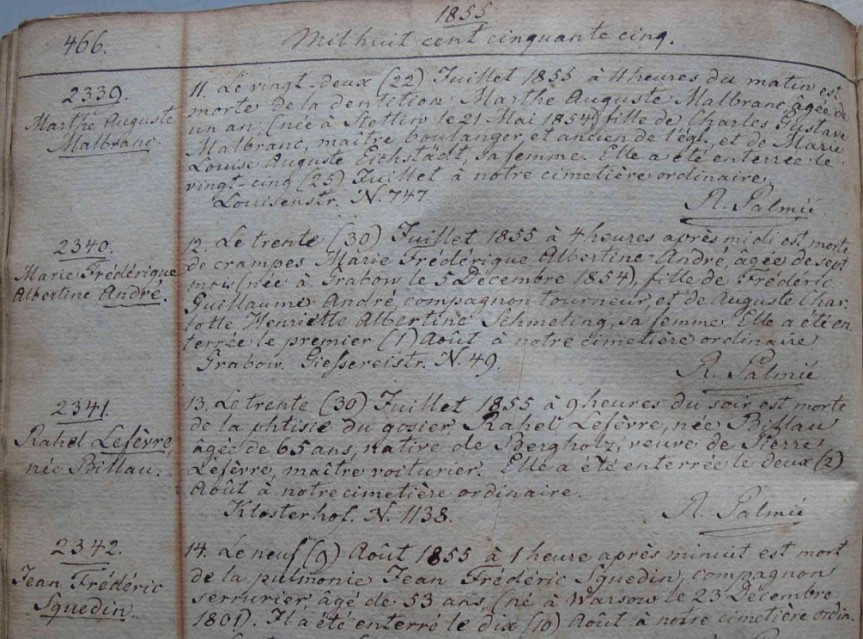 1855
466.
Mil huit cent cinquante cinq.
2339.
Marthe Auguste
Malbranc.
11. Le vingt-deux (22) Juillet 1855 à 11 heures du matin est
morte de la dentition Marthe Auguste Malbranc, agée de
un an, (née à Stettin le 21 Mai 1854) fille de Charles Gustave
Malbranc, maître boulanger et ancien de l'égl. et de Marie
Louise Auguste Eichstädt, sa femme. Elle a été enterrée le
vingt-cinq (25) Juillet à notre cimetière ordinaire.
Louisenstr. N. 747.
R. Palmié
2340.
Marie Frédérique
Albertine André.
12. Le trente (30) Juillet 1855 à 4 heures après midi est morte
de crampes Marie Frédérique Albertine André, agée de sept
mois (née à Grabow le 5 Décembre 1854), fille de Frédéric
Guillaume André, compagnon tourneur, et de Auguste Char-
lotte Henriette Albertine Schmeling, sa femme. Elle a été en-
terrée le premier (1) Août à notre cimetière ordinaire
Grabow. Giessereistr. N. 49.
R. Palmié
2341.
Rahel Lefèvre,
née Billau.
13. Le trente (30) Juillet 1855 à 9 heures du soir est morte
de la phtisie du gosier Rahel Lefèvre, née Billau
âgée de 65 ans, native de Bergholz, veuve de Pierre
Lefèvre, maître voiturier. Elle a été enterrée le deux (2)
Août à notre cimetière ordinaire.
Klosterhof. N. 1138.
R. Palmié
2342.
Jean Frédéric
Squedin.
14. Le neuf (9) Août 1855 à 1 heure après minuit est mort
de la pulmonie Jean Frédéric Squedin, compagnon
serrurier, âgé de 53 ans, (né à Warsow le 23 Décembre
1801). Il a été enterré le dix (10) Août à notre cimetière ordin.